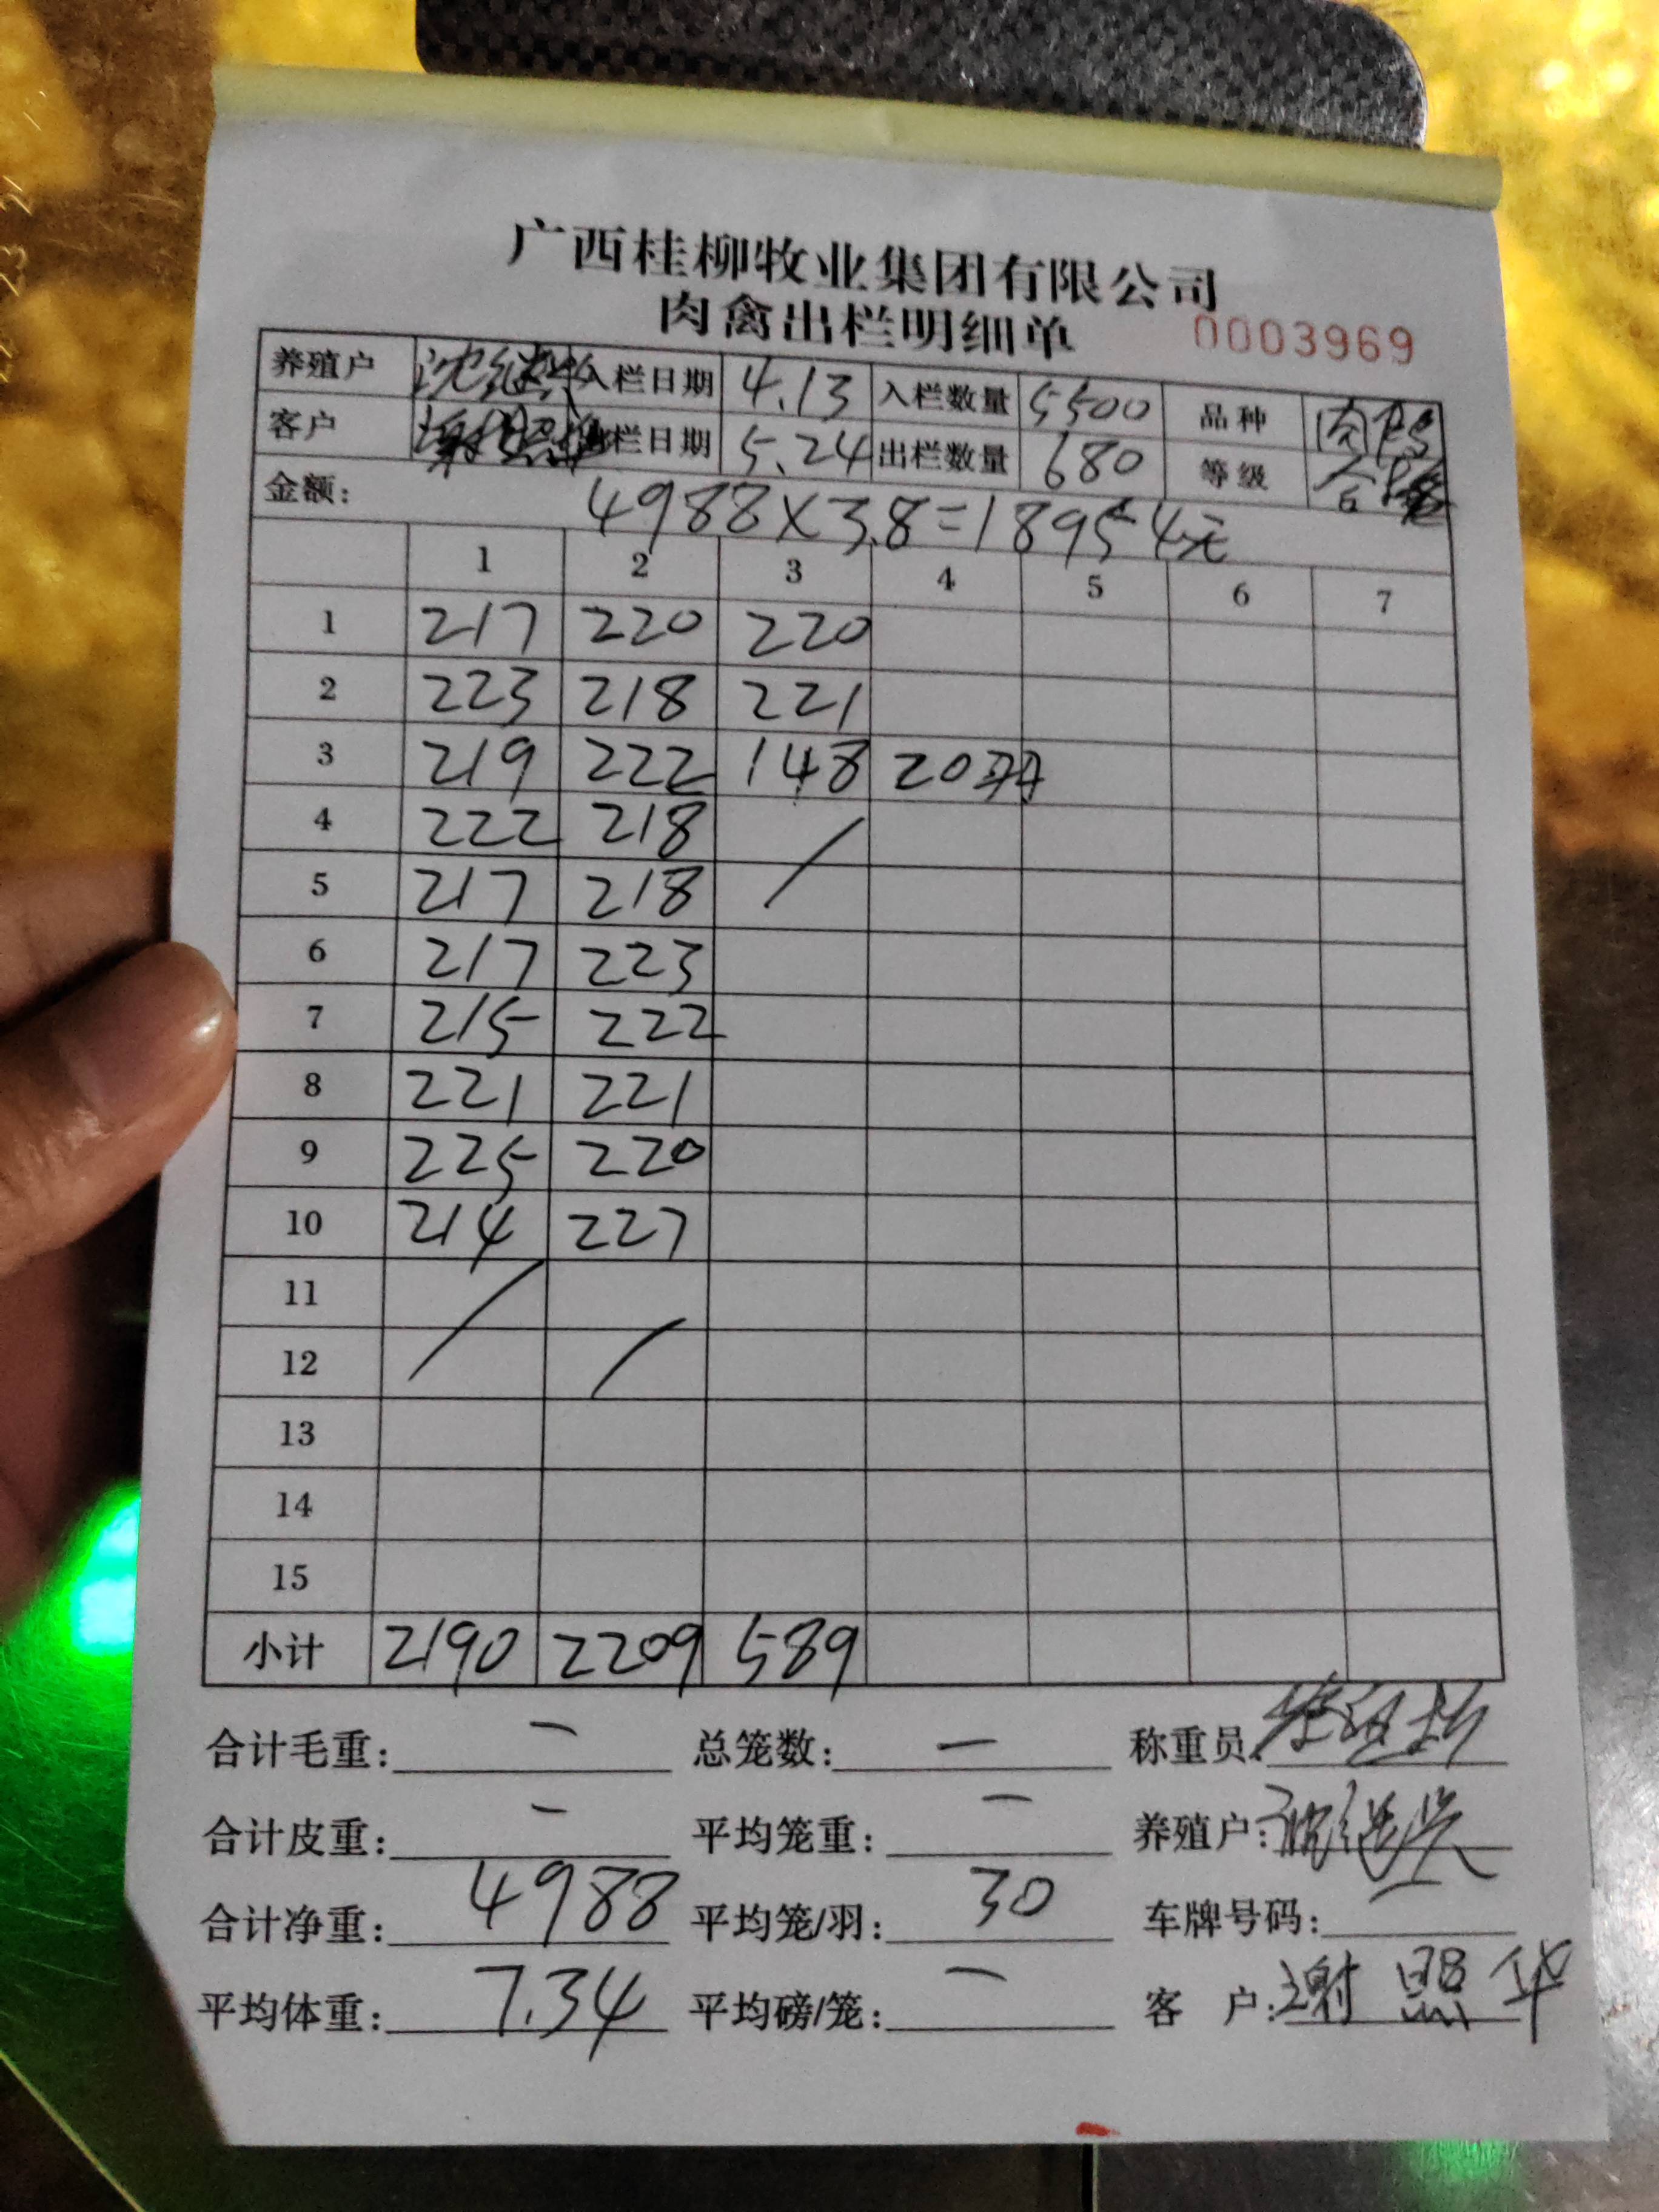 广西桂柳牧业集团有限公司
肉禽出栏明细单 0003969
养殖户 沈继兴 入栏日期 4.13 入栏数量 5500 品种 肉鸭
客户 谢照华 栏日期 5.24 出栏数量 680 等级 合格
金额: 4988×3.8=18954元
1 2 3 4 5 6 7
1 217 220 220
2 223 218 221
3 219 222 148 20羽
4 222 218 /
5 217 218
6 217 223
7 215 222
8 221 221
9 225 220
10 214 227
11 /
12 /
13
14
15
小计 2190 2209 589
合计毛重: — 总笼数: — 称重员:
合计皮重: — 平均笼重: — 养殖户: 沈继兴
合计净重: 4988 平均笼/羽: 30 车牌号码: —
平均体重: 7.34 平均磅/笼: — 客 户: 谢照华